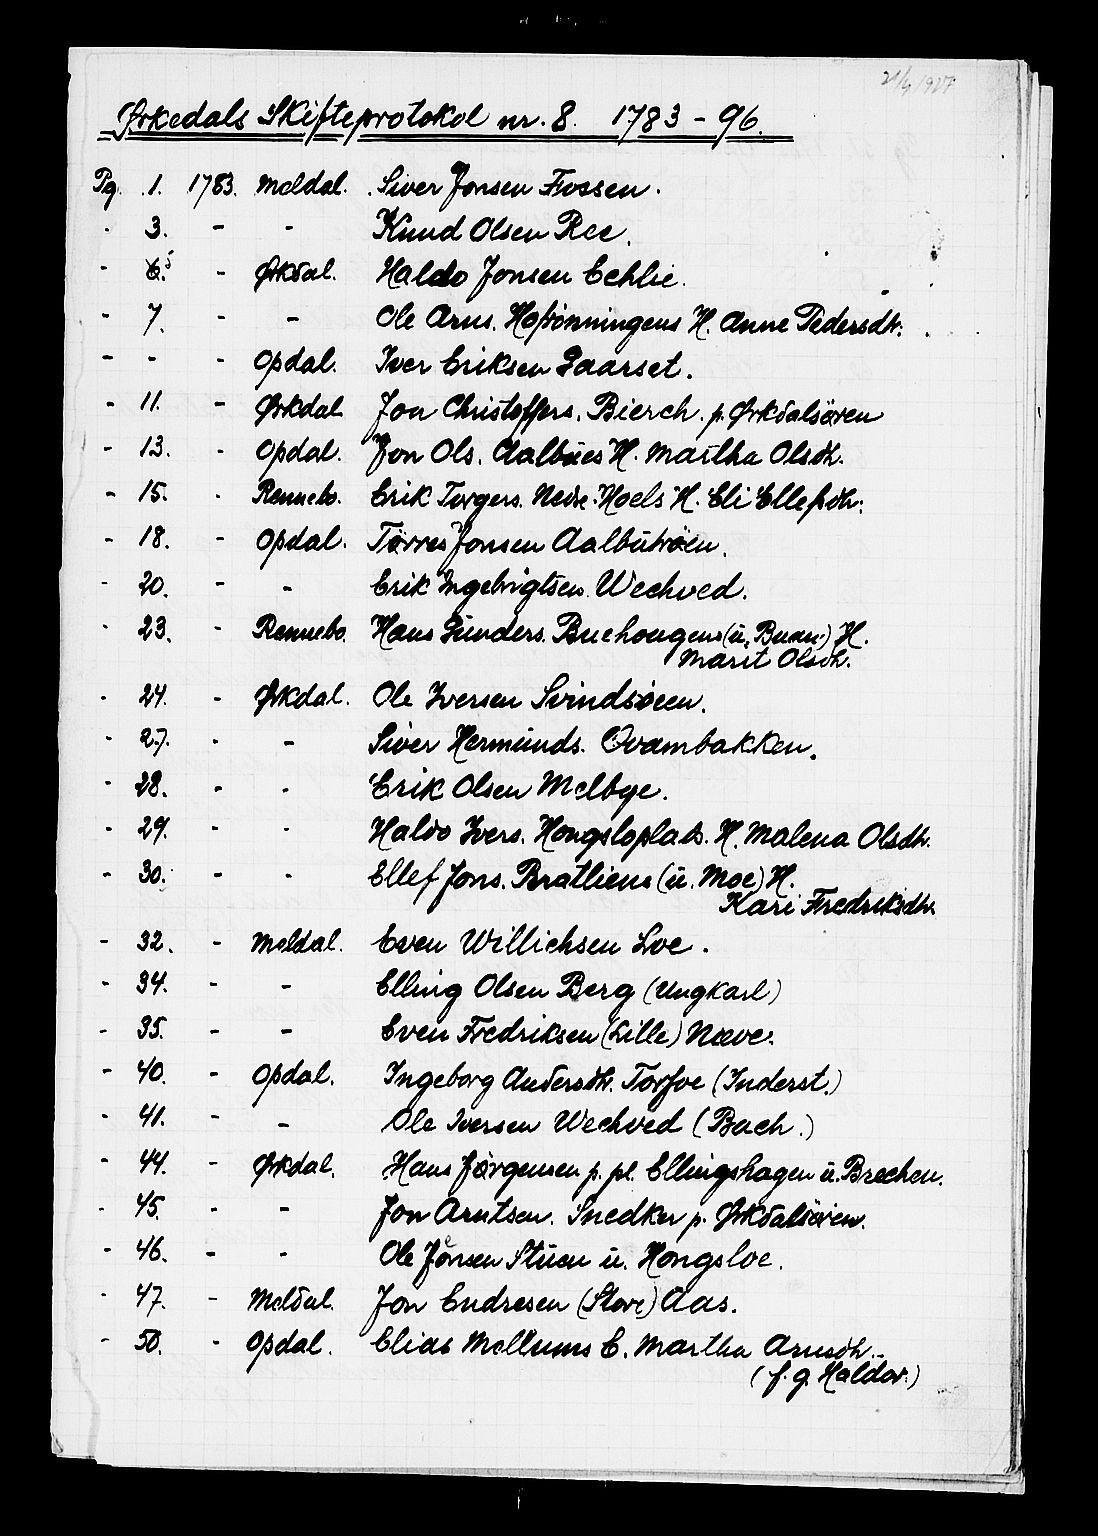 Ørkedals Skifteprotokol nr. 8. 1783 - 96.
Pg. 1. 1783. Meldal. Siver Jonsen Fossen.
- 3. - - Knud Olsen Ree.
- 5 - Ørkdal. Haldo Jonsen Echlie.
- 7. - - Ole Arns. Hofrønningens H. Anne Pedersdtr.
- - - Opdal. Iver Eriksen Gaarset.
- 11. - Ørkdal Jon Christoffers. Bierch. p. Ørkdalsøren
- 13. - Opdal. Jon Ols. Aalbues H. Martha Olsdtr.
- 15. - Rennebo. Erik Torgers. Nedre Hoels H. Eli Ellefsdtr.
- 18. - Opdal. Tørres Jonsen Aalbutrøen.
- 20. - - Erik Ingebrigtsen Wechved.
- 23. - Rennebo. Hans Gunders. Buehougens (u. Buan) H.
Marit Olsdtr.
- 24. - Ørkdal. Ole Iversen Svindsøeen.
- 27. - - Siver Hermunds. Qvambakken.
- 28. - - Erik Olsen Melbye.
- 29. - - Haldo Ivers. Hongsloplads. H. Malena Olsdtr.
- 30. - - Ellef Jons. Bratliens (u. Moe) H.
Kari Fredriksdtr
- 32. - Meldal. Even Willichsen Loe.
- 34. - - Elling Olsen Berg (Ungkarl)
- 35. - - Even Fredriksen (Lille) Næve.
- 40. - Opdal. Ingeborg Andersdtr. Torfve (Inderst.)
- 41. - - Ole Iversen Wechved (Bach.)
- 44. - Ørkdal. Hans Jørgensen p. pl. Ellingshagen u. Brechen.
- 45. - - Jon Arntsen. Snedker p. Ørkdalsøren.
- 46. - - Ole Jonsen Stuen u. Hongsloe.
- 47. - Meldal. Jon Endresen (Store) Aas.
- 50. - Opdal. Elias Mellums E. Martha Arnsdtr.
(f. g. Haldor.)